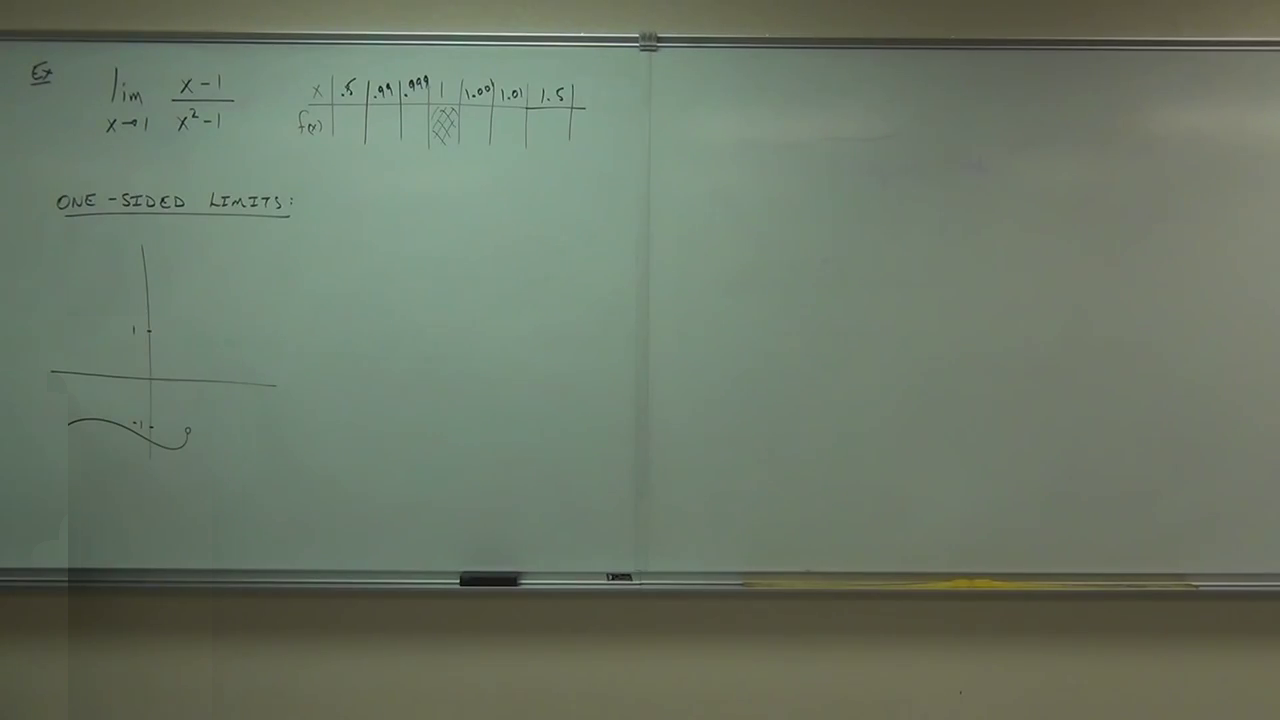 Ex lim x→1 x-1 / x²-1
x .5 .99 .999 1 1.001 1.01 1.5
f(x)
ONE-SIDED LIMITS:
1
-1